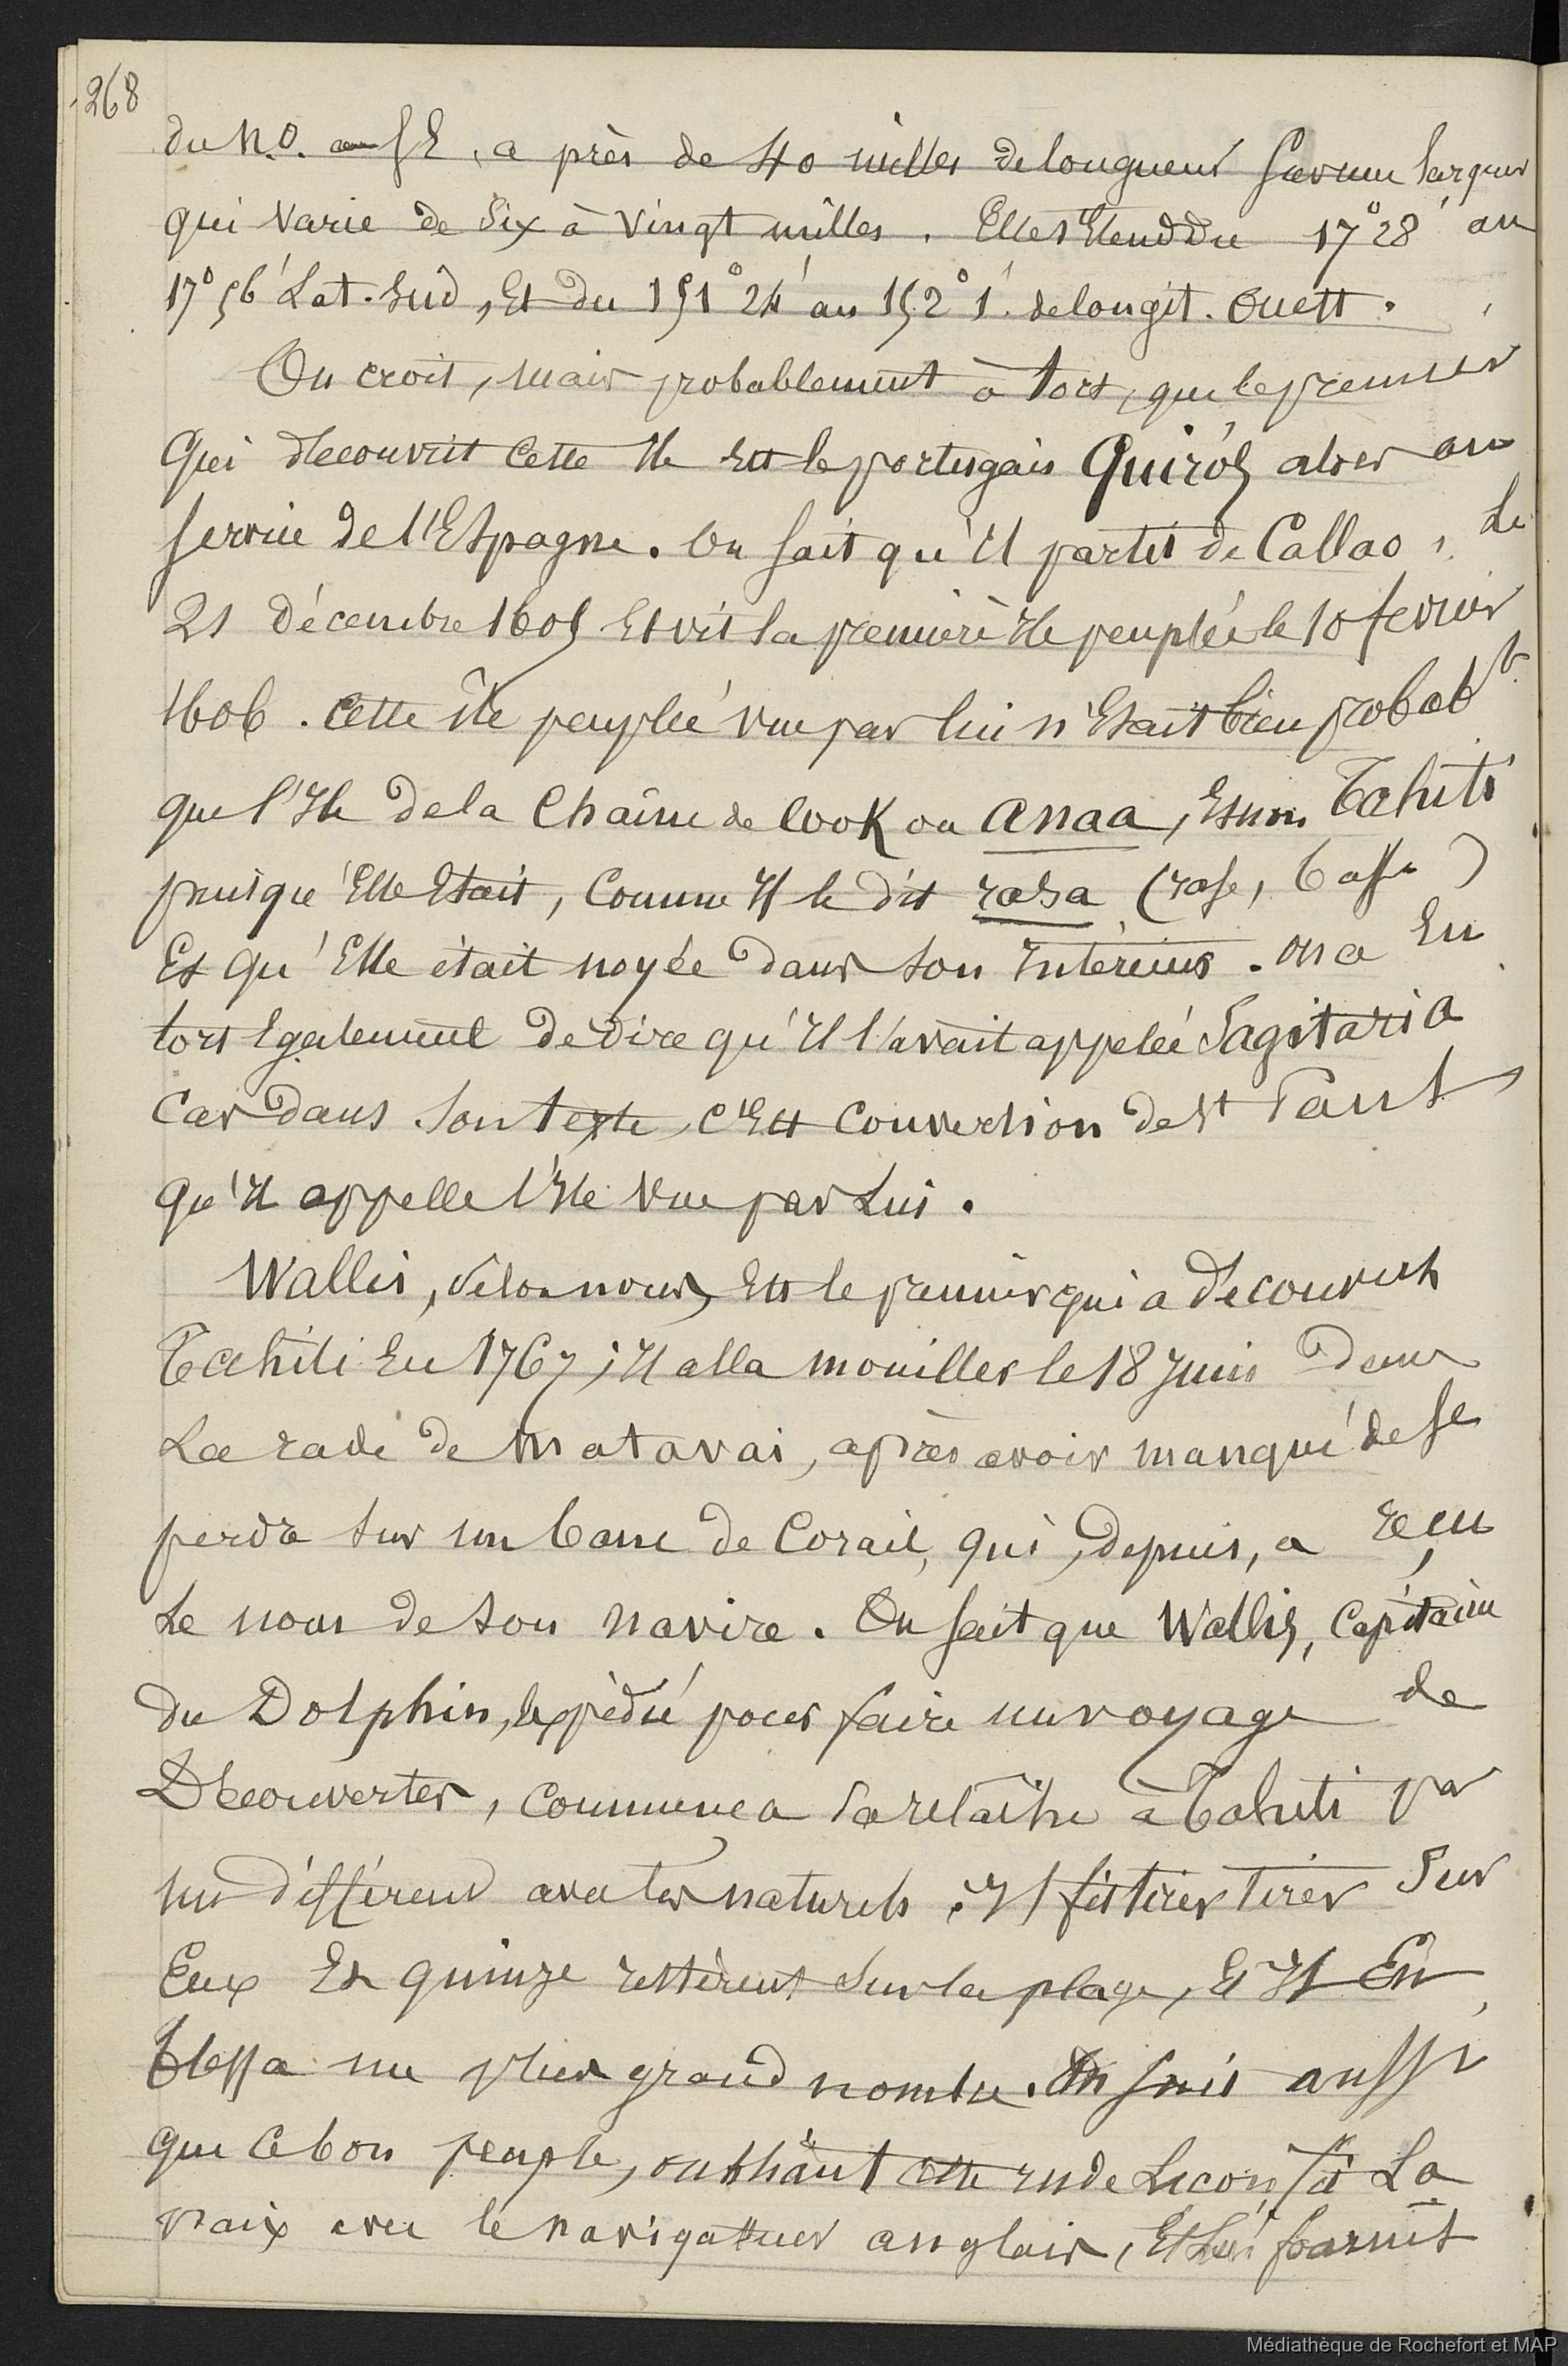 268
du N.O. au SE, a près de 40 milles de longueur sur une largeur
qui varie de six à vingt milles. Elle s'étend du 17° 28' au
17° 56' Lat. Sud, et du 151° 24' au 152° 1' de longit. Ouest.
On croit, mais probablement à tort, que le premier
qui découvrit cette île est le portugais Quirós alors au
service de l'Espagne. On sait qu'il partit de Callao, le
21 décembre 1605 et vit la première île peuplée le 10 fevrier
1606. Cette île peuplée vue par lui n'était bien probabt
que l'île de la Chaîne de Cook ou Anaa, et non Tahiti
puisqu'elle était, comme il le dit rasa (rase, basse)
et qu'elle était noyée dans son intérieur. On a eu
tort également de dire qu'il l'avait appelée Sagitaria
car dans son texte, c'est conversion de St Paul
qu'il appelle l'île vue par lui.
Wallis, selon nous, est le premier qui a découvert
Tahiti en 1767 ; il alla mouiller le 18 juin dans
la rade de Matavai, après avoir manqué de se
perdre sur un banc de corail, qui, depuis, a reçu
le nom de son navire. On sait que Wallis, capitaine
du Dolphin, expédié pour faire un voyage de
Découvertes, commença sa relâche à Tahiti par
un différend avec les naturels ; il fit tirer tirer sur
eux et quinze restèrent sur la plage, et il en
blessa un plus grand nombre. On sait aussi
que ce bon peuple, oubliant cette rude leçon, fit la
paix avec le navigateur anglais, et lui fournit
Médiathèque de Rochefort et MAP